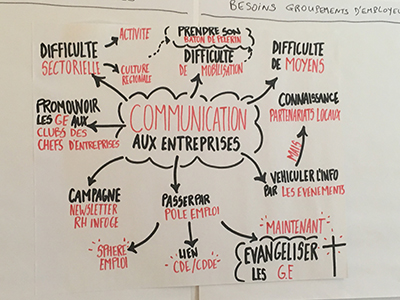 BESOINS GROUPEMENTS D'EMPLOYEU
DIFFICULTE
SECTORIELLE
ACTIVITÉ
CULTURE
REGIONALE
PRENDRE SON
BATON DE PELERIN
DIFFICULTE
DE MOBILISATION
DIFFICULTE
DE MOYENS
CONNAISSANCE
PARTENARIATS LOCAUX
MAIS
VEHICULER L'INFO
PAR LES EVENEMENTS
COMMUNICATION
AUX ENTREPRISES
PROMOUVOIR
LES GE AUX
CLUBS DES
CHEFS D'ENTREPRISES
CAMPAGNE
NEWSLETTER
RH INFOGE
PASSER PAR
POLE EMPLOI
SPHERE
EMPLOI
LIEN
CDE/CDDE
MAINTENANT
EVANGELISER
LES G.E